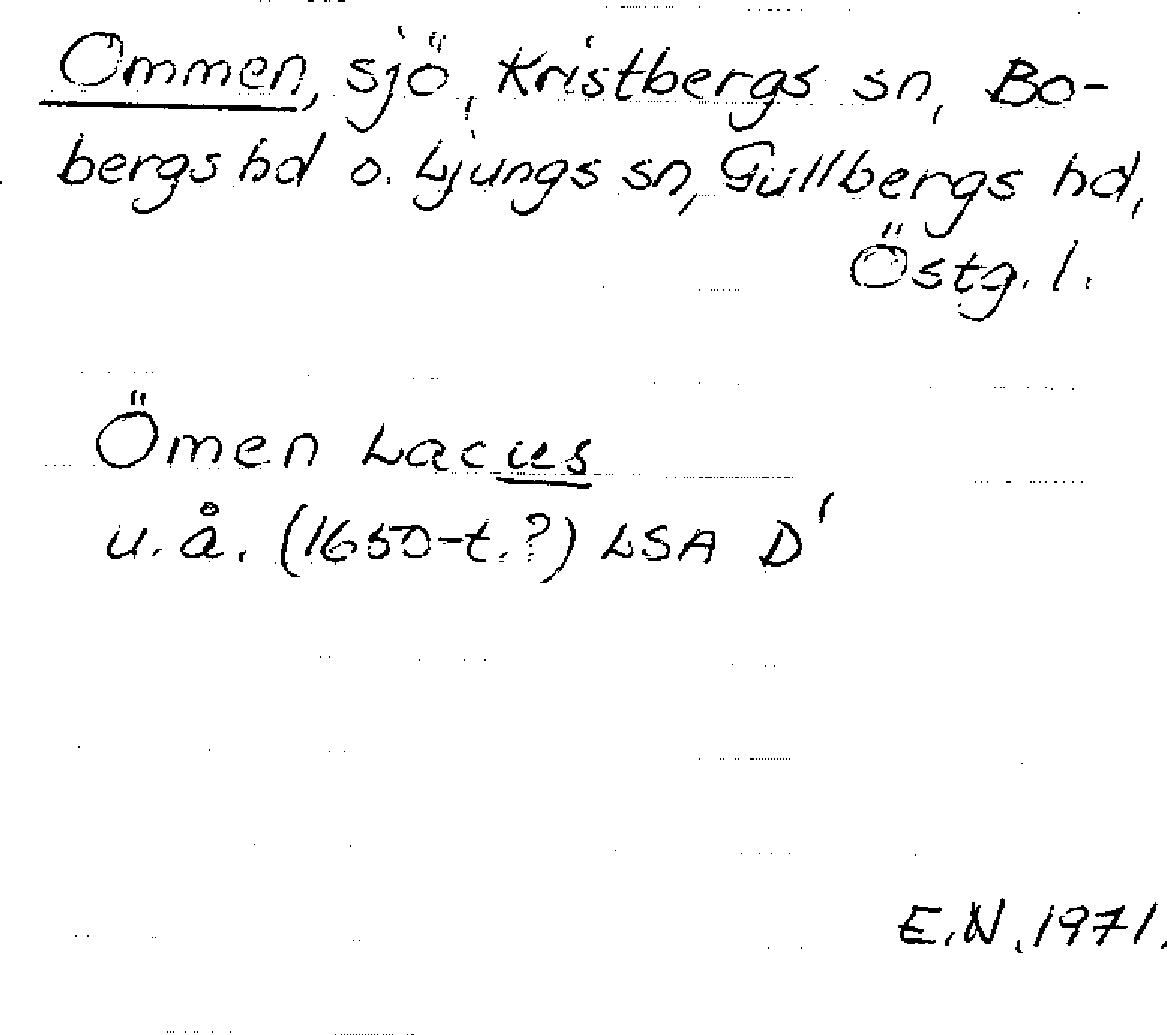 Ommen, sjö, Kristbergs sn, Bo-
bergs hd o. Ljungs sn, Gullbergs hd,
Östg. l.
Ömen Lacus
u.å. (1650-t.?) LSA D'
E.N. 1971.